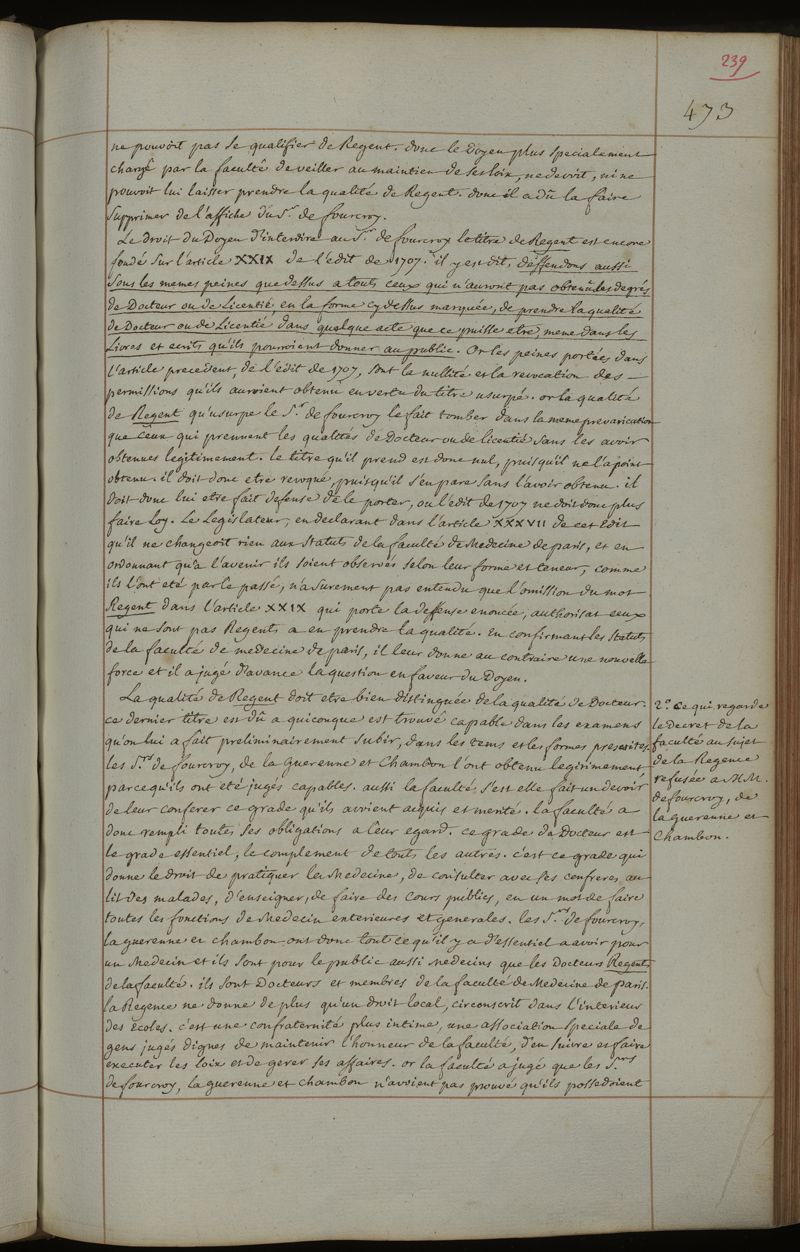 239
473
ne pouvoit pas se qualifier de Regent. donc le Doyen plus specialement
chargé par la faculté de veiller au maintien de ses loix, ne devoit, ni ne
pouvoit lui laisser prendre la qualité de Regent. donc il a dû la faire
supprimer de l'affiche du Sr. de fourcroy.
Le droit du Doyen d'interdire au Sr. de fourcroy le titre de Regent est encore
fondé sur l'article XXIX de l'édit de 1707. il y est dit, deffendons aussi
sous les memes peines que dessus a touts ceux qui n'auront pas obtenu les degrés
de Docteur ou de Licentié, en la forme cy dessus marquée, de prendre la qualité
de Docteur ou de Licentié dans quelque acte que ce puisse etre, meme dans les
Livres et ecrits qu'ils pourroient donner au public. Or les peines portées dans
l'article precedent, de l'édit de 1707, sont la nullité et la revocation des
permissions qu'ils auroient obtenu en vertu du titre usurpé. or la qualité
de Regent qu'usurpe le Sr. de fourcroy le fait tomber dans la meme prevarication
que ceux qui prennent les qualités de Docteur ou de licentié sans les avoir
obtenues legitimement. le titre qu'il prend est donc nul, puisqu'il ne l'a point
obtenu. il doit donc etre revoqué, puisqu'il s'en pare sans l'avoir obtenu. il
doit donc lui etre fait defense de le porter, ou l'édit de 1707 ne doit donc plus
faire loy. Le Legislateur, en declarant dans l'article XXXVII de cet Edit
qu'il ne changeoit rien aux Statuts de la faculté de Medecine de paris, et en
ordonnant qu'a l'avenir ils soient observés selon leur forme et teneur, comme
ils l'ont eté par le passé, n'a surement pas entendu que l'omission du mot
Regent dans l'article XXIX qui porte la deffense enoncée, authorisat ceux
qui ne sont pas Regents a en prendre la qualité. En confirmant les Statuts
de la faculté de medecine de paris, il leur donne au contraire une nouvelle
force et il a jugé d'avance la question en faveur du Doyen.
La qualité de Regent doit etre bien distinguée de la qualité de Docteur.
ce dernier titre est dû a quiconque est trouvé capable dans les examens
qu'on lui a fait preliminairement subir, dans les tems et les formes prescrites.
les Srs. de fourcroy, de la Guerenne et Chambon l'ont obtenu legitimement
parcequ'ils ont eté jugés capables. aussi la faculté s'est elle fait un devoir
de leur conferer ce grade qu'ils avoient acquis et merité. la faculté a
donc rempli toutes ses obligations a leur egard. ce grade de Docteur est
le grade essentiel, le complement de touts les autres. c'est ce grade qui
donne le droit de pratiquer la Medecine, de consulter avec ses confreres au
lit des malades, d'enseigner, de faire des Cours publics, en un mot de faire
toutes les fonctions de Medecin exterieures et generales. les Srs. de fourcroy,
la guerenne et chambon ont donc tout ce qu'il y a d'essentiel a avoir pour
un Medecin et ils sont pour le public aussi Medecins que les Docteurs Regents
de la faculté. ils sont Docteurs et membres de la faculté de Medecine de paris.
la Regence ne donne de plus qu'un droit local, circonscrit dans l'interieur
des Ecoles. c'est une confraternité plus intime, une association speciale de
gens jugés dignes de maintenir l'honneur de la faculté, d'en suivre et faire
executer les loix et de gerer ses affaires. or la faculté a jugé que les Srs.
de fourcroy, la guerenne et chambon n'avoient pas prouvé qu'ils possedoient
2°. Ce qui regarde
le Decret de la
faculté au sujet
de la Regence
refusée a MM.
de fourcroy, de
la guerenne et
Chambon.